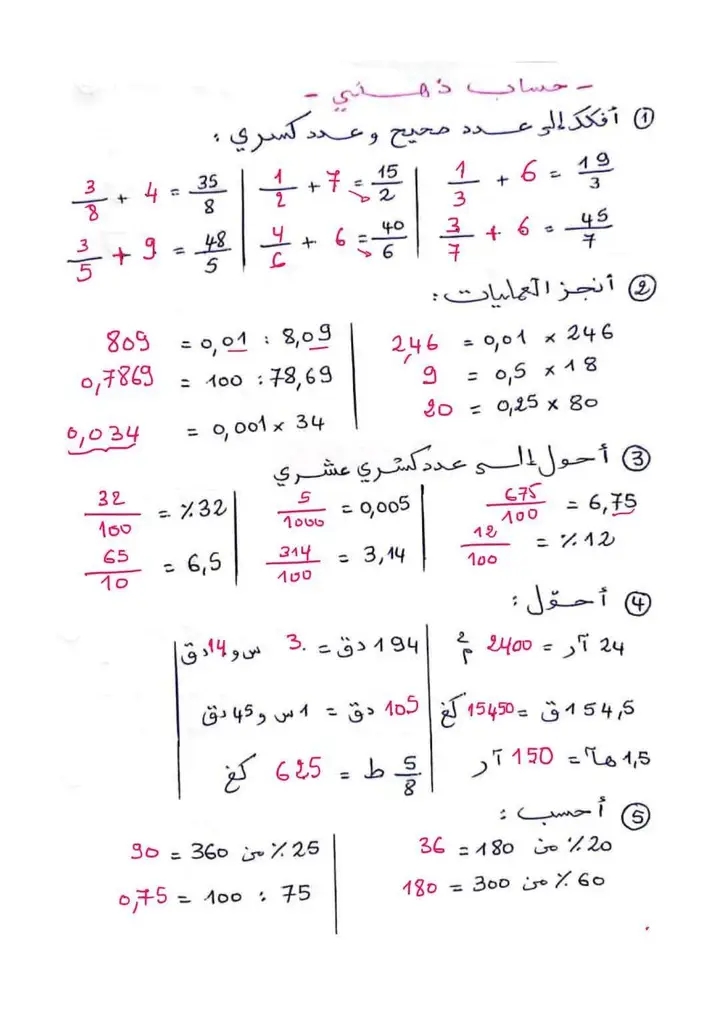 - حساب ذهني -
① أفكك إلى عدد صحيح و عدد كسري :
19/3 = 6 + 1/3 | 15/2 = 7 + 1/2 | 35/8 = 4 + 3/8
45/7 = 6 + 3/7 | 40/6 = 6 + 4/6 | 48/5 = 9 + 3/5
② أنجز العمليات :
246 × 0,01 = 2,46 | 8,09 : 0,01 = 809
18 × 0,5 = 9 | 78,69 : 100 = 0,7869
80 × 0,25 = 20 | 34 × 0,001 = 0,034
③ أحول إلى عدد كسري عشري
6,75 = 675/100 | 0,005 = 5/1000 | 32٪ = 32/100
12٪ = 12/100 | 3,14 = 314/100 | 6,5 = 65/10
④ أحوّل :
24 آر = 2400 م² | 194 دق = 3 س و 14 دق
154,5 ق = 15450 كغ | 105 دق = 1 س و 45 دق
1,5 هآ = 150 آر | 5/8 ط = 625 كغ
⑤ أحسب :
20٪ من 180 = 36 | 25٪ من 360 = 90
60٪ من 300 = 180 | 75 : 100 = 0,75